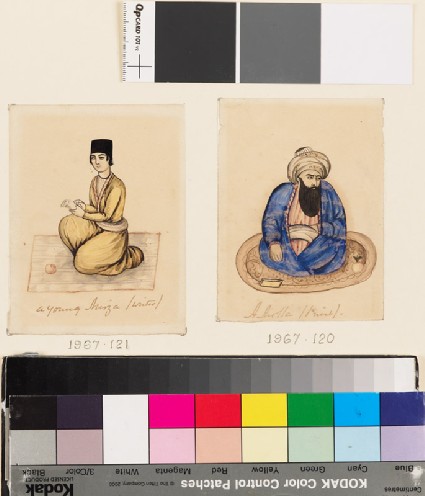 OPCARD 101
a young Mirza (writer)
A Mulla (Priest).
1967.121
1967.120
Blue
Cyan
Green
Yellow
Red
Magenta
White
3/Color
Black
Centimetres
KODAK Color Control Patches
Kodak
LICENSED PRODUCT